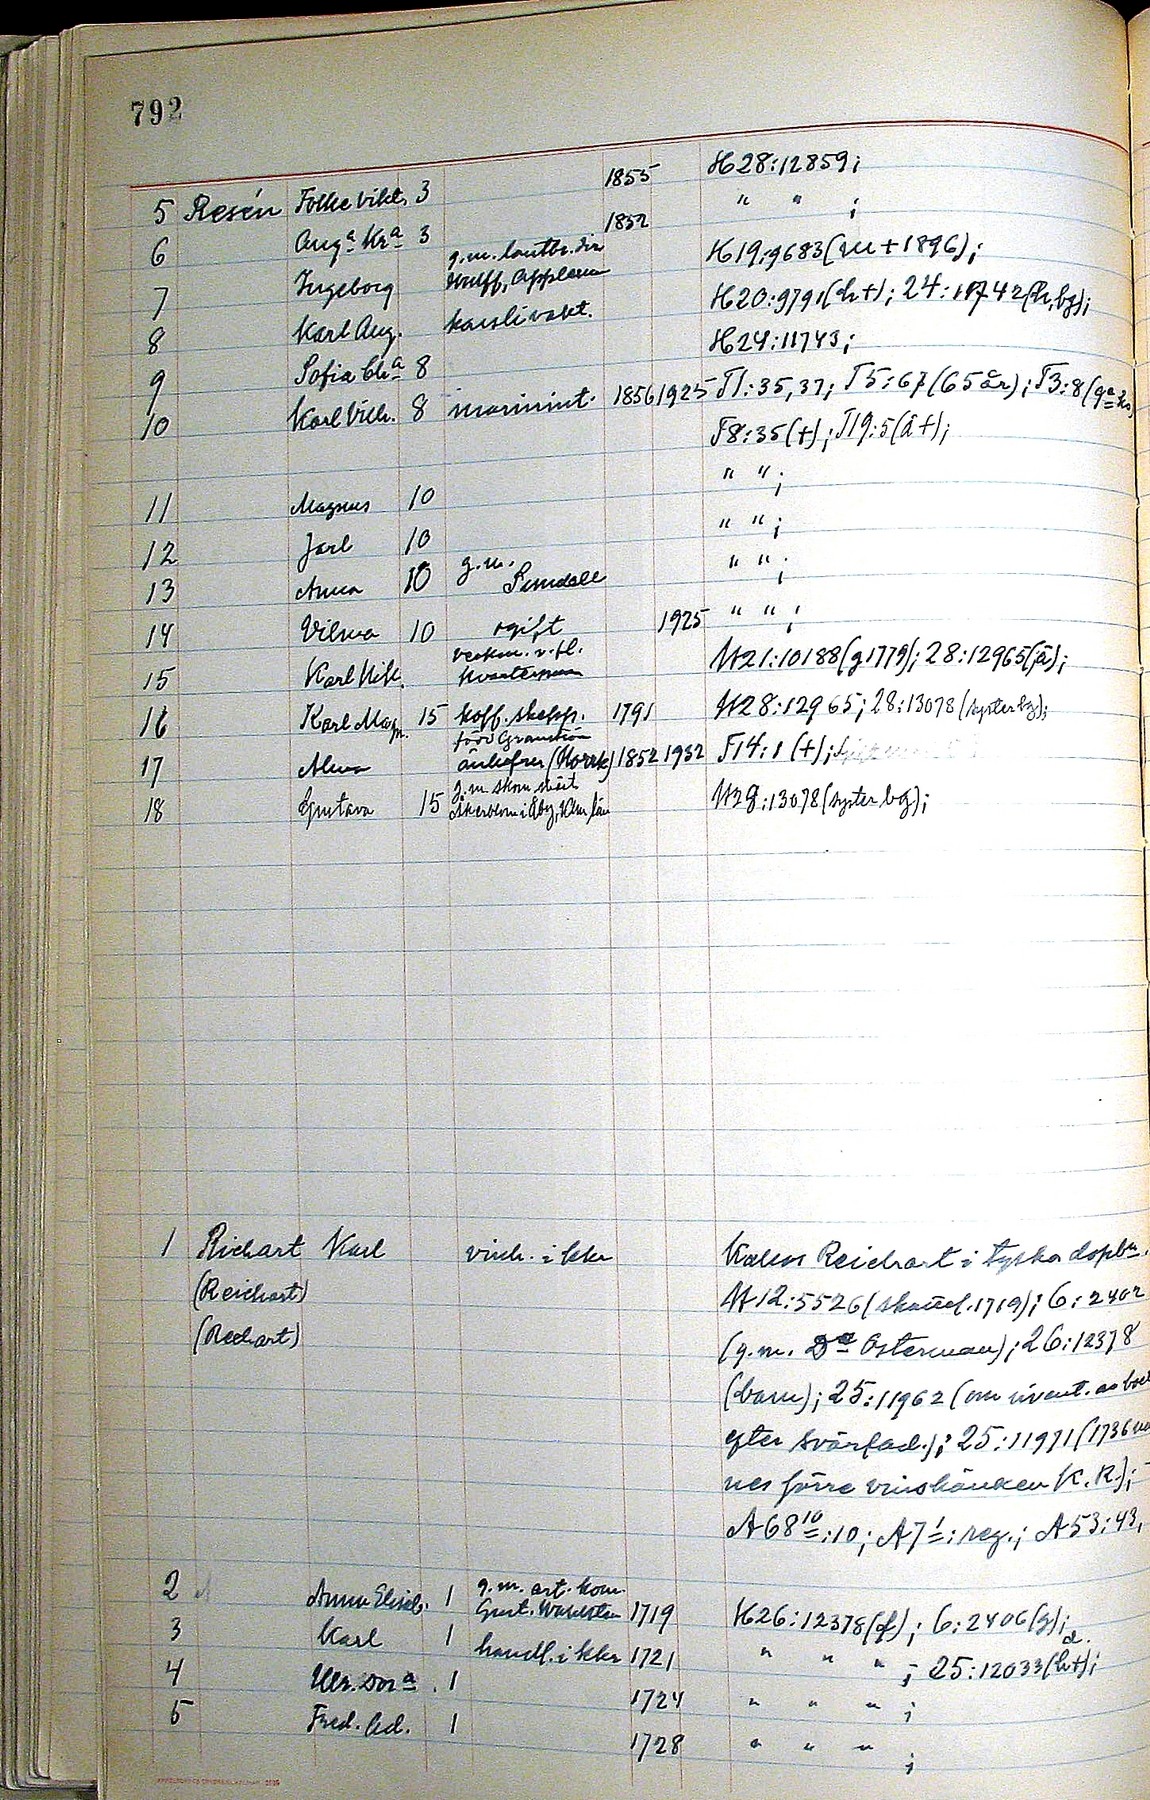 792
5 Resén Folke Vikt. 3 1855 H28:12859;
6 Aug.a Kr.a 3 1852 " " ;
7 Ingeborg g.m. lantbr. dir. H19:9683 (m + 1896);
Wulff,
8 Karl Aug. H20:9791 (h+); 24:11742 (h, bg);
9 Sofia Ch.a 8 H24:11743;
10 Karl Vilh. 8 marinint. 1856 1925 T1:35,37; T5:67 (65 år); T3:8
T8:35 (+); T19:5 (å+);
11 Magnus 10 " " ;
12 Jarl 10 " " ;
13 Anna 10 g.m. " " ;
14 Vilma 10 ogift 1925 " " ;
15 Karl Nikl. verkm. v. fl. H21:10188 (g 1779); 28:12965 (å);
kvarterman
16 Karl Magn. 15 koff. skepp. 1791 H28:12965; 28:13078 (syster bg);
17 Alma född Granström 1852 1932 F14:1 (+);
änkefru
18 Gustava 15 g.m. skom. mäst. H28:13078 (syster bg);
Åkerblom i Åby, Klm. län
1 Richart Karl vinh. i Kkr Kallas Reichart i tyska dopb.
(Reichart) H12:5526 (skattl. 1719); 6:2402
(Rechart) (g.m. D.a Osterman); 26:12378
(barn); 25:11962 (om invent. av
efter svärfad.); 25:11971 (1736
nes förre vinskänken K.R.);
A 68 10:10; A 7 1: reg.; A 53:43,
2 Anna Elisab. 1 g.m. art. kom. 1719 H26:12378 (f); 6:2406 (g);
Gust. Wahlsten
3 Karl 1 handl. i Kkr 1721 " " " ; 25:12033 (h+);
4 Ulr. Dor.a 1 1724 " " " ;
5 Fred. Ad. 1 1728 " " " ;